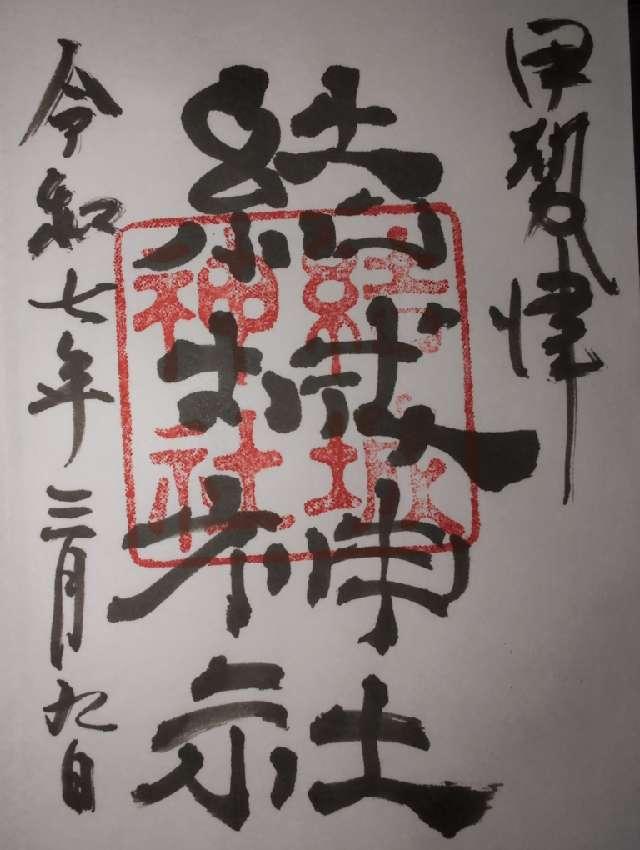 伊勢津
結城神社
結城
神社
令和七年三月九日